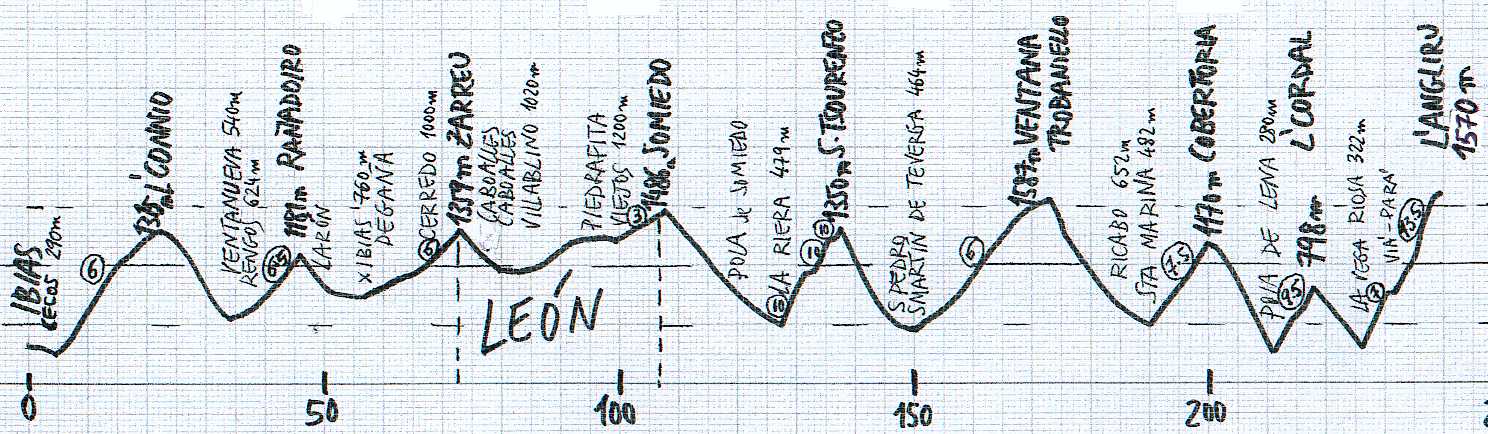 IBIAS
CECOS 290m
6
1315m L'CONNIO
VENTANUEVA 540m
RENGOS 624m
1181m RAÑADOIRO
LARÓN
X IBIAS 760m
DEGAÑA
CERREDO 1000m
1359m ZARREU
CABOALLES
CABOALLES
VILLABLINO 1020m
LEÓN
PIEDRAFITA
VIEJOS 1200m
3
1486m SOMIEDO
POLA de SOMIEDO
LA RIERA 479m
1350m S. TSOURENZO
S PEDRO
S MARTIN DE TEVERGA 464m
1587m VENTANA
TROBANIELLO
RICABO 652m
STA MARINA 482m
7.5
1170m COBERTORIA
POLA DE LENA 280m
9.5
798m L'CORDAL
LA VEGA RIOSA 322m
VIA-PARA'
13.5
L'ANGLIRU
1570m
0
50
100
150
200